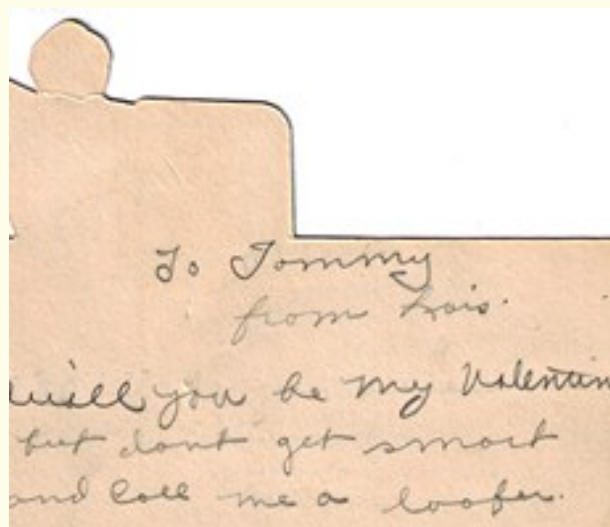 To Tommy
from Lois.
will you be my Valentin
but dont get smart
and call me a loofer.